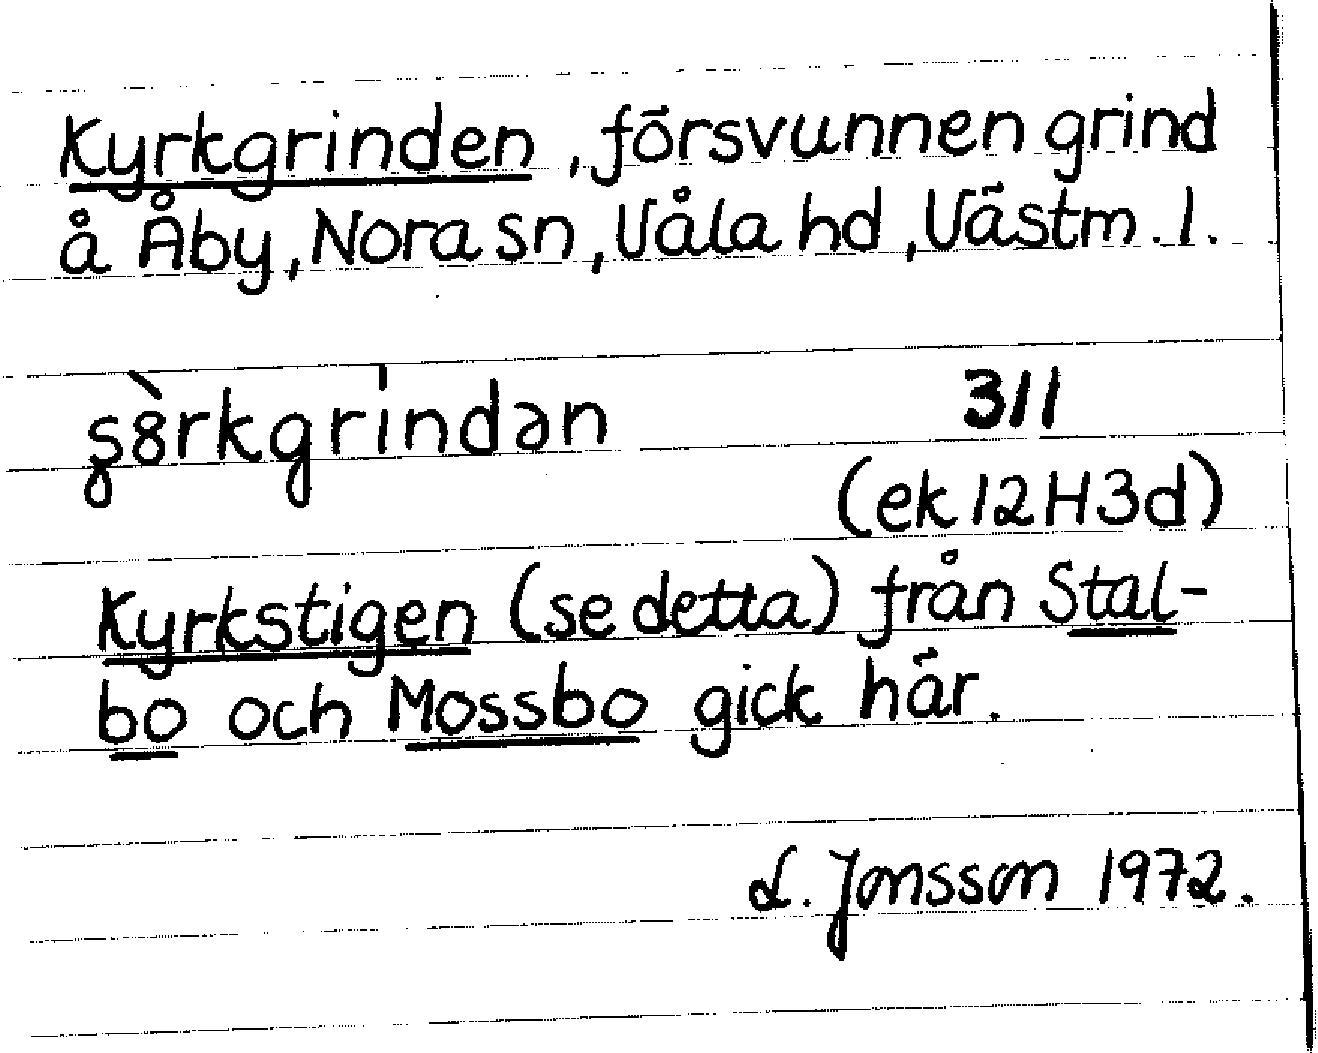 Kyrkgrinden, försvunnen grind
å Åby, Nora sn, Våla hd, Västm. l.
ʂ8̀rkgrindən 311
(ek 12H3d)
Kyrkstigen (se detta) från Stal-
bo och Mossbo gick här.
L. Jonsson 1972.